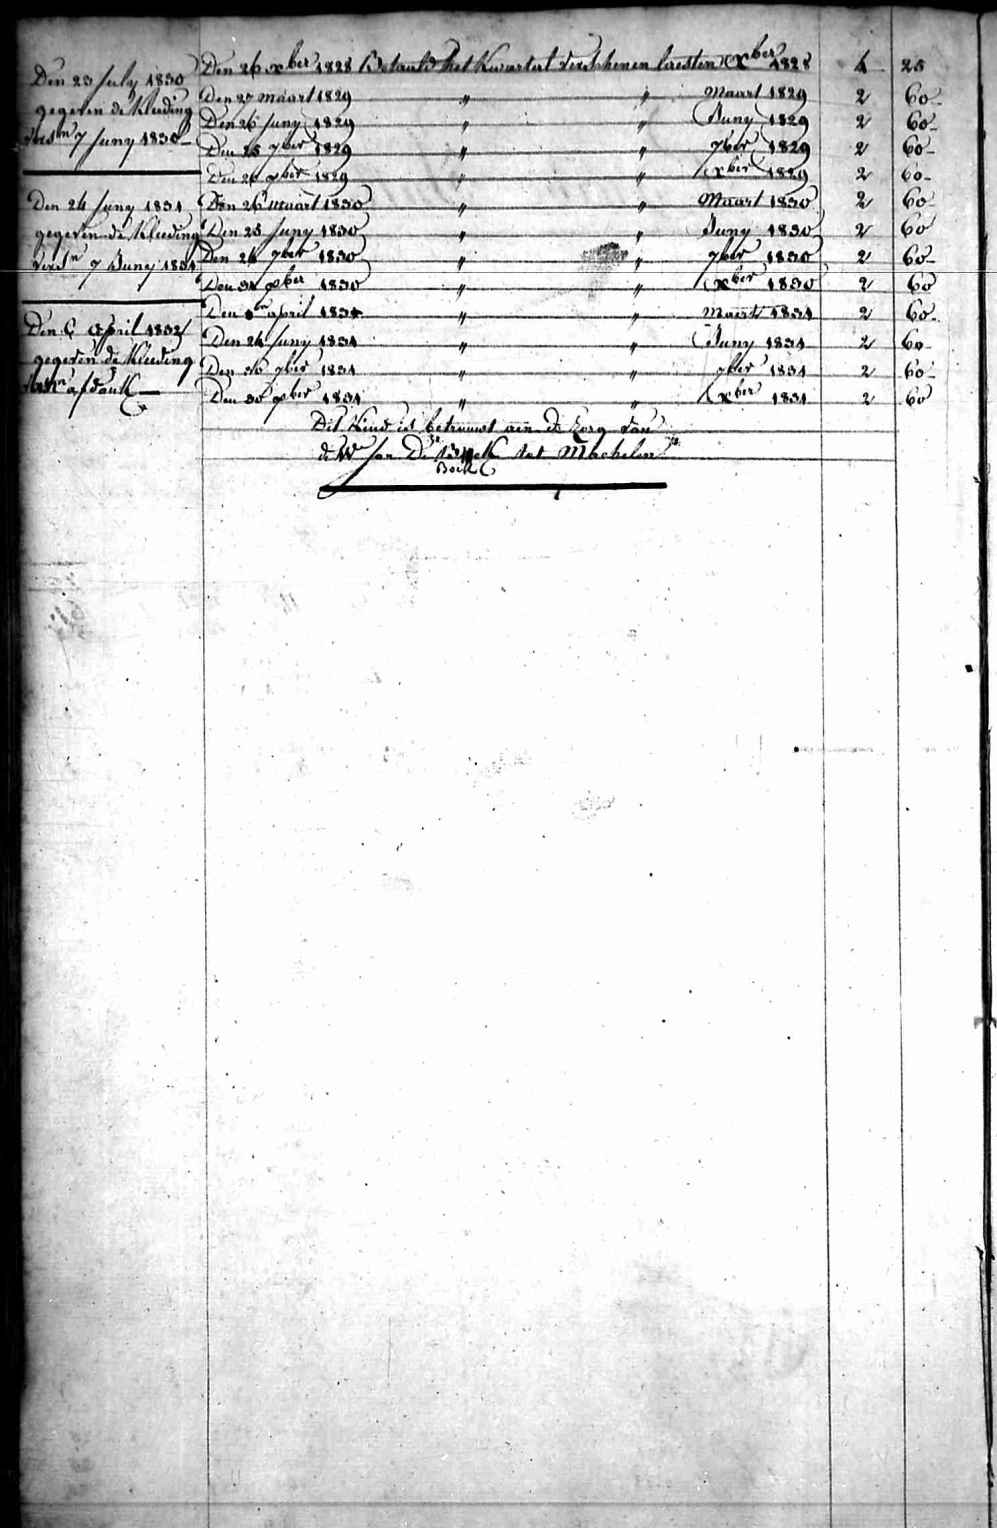 Den 23 July 1830
gegeven de kleeding
versn 7 Juny 1830
Den 24 Juny 1831
gegeven de kleeding
versn 7 Juny 1831
Den 6 April 1832
gegeven de kleeding
Den 26 xber 1828 Betaald het kwartael verschenen laesten xber 1828 4 25
Den 27 maart 1829 " " Maart 1829 2 60
Den 26 Juny 1829 " " Juny 1829 2 60
Den 25 7ber 1829 " " 7ber 1829 2 60
Den 26 xber 1829 " " xber 1829 2 60
Den 26 maart 1830 " " Maart 1830 2 60
Den 25 Juny 1830 " " Juny 1830 2 60
Den 24 7ber 1830 " " 7ber 1830 2 60
Den 31 xber 1830 " " xber 1830 2 60
Den april 1831 " " Maert 1831 2 60
Den 24 Juny 1831 " " Juny 1831 2 60
Den 30 7ber 1831 " " 7ber 1831 2 60
Den 30 xber 1831 " " xber 1831 2 60
Dit kind is betrouwt aen de Zorg van
de We Jan De tot Mechelen
Bock